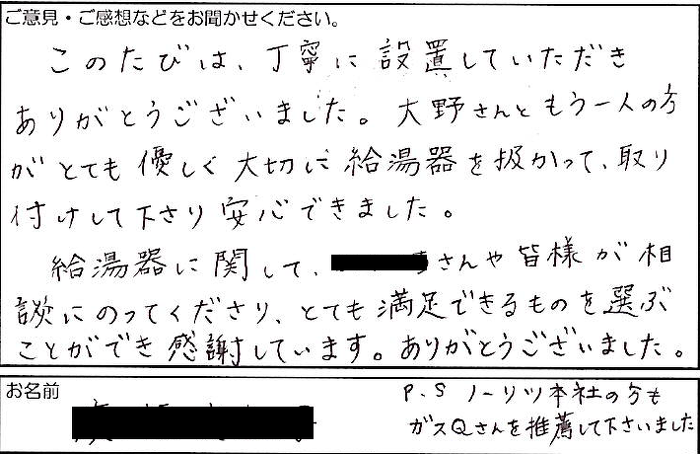 ご意見・ご感想などをお聞かせください。
このたびは、丁寧に設置していただき
ありがとうございました。大野さんともう一人の方
がとても優しく大切に給湯器を扱かって、取り
付けして下さり安心できました。
給湯器に関して、さんや皆様が相
談にのってくださり、とても満足できるものを選ぶ
ことができ感謝しています。ありがとうございました。
お名前
P.S ノーリツ本社の方も
ガスQさんを推薦して下さいました